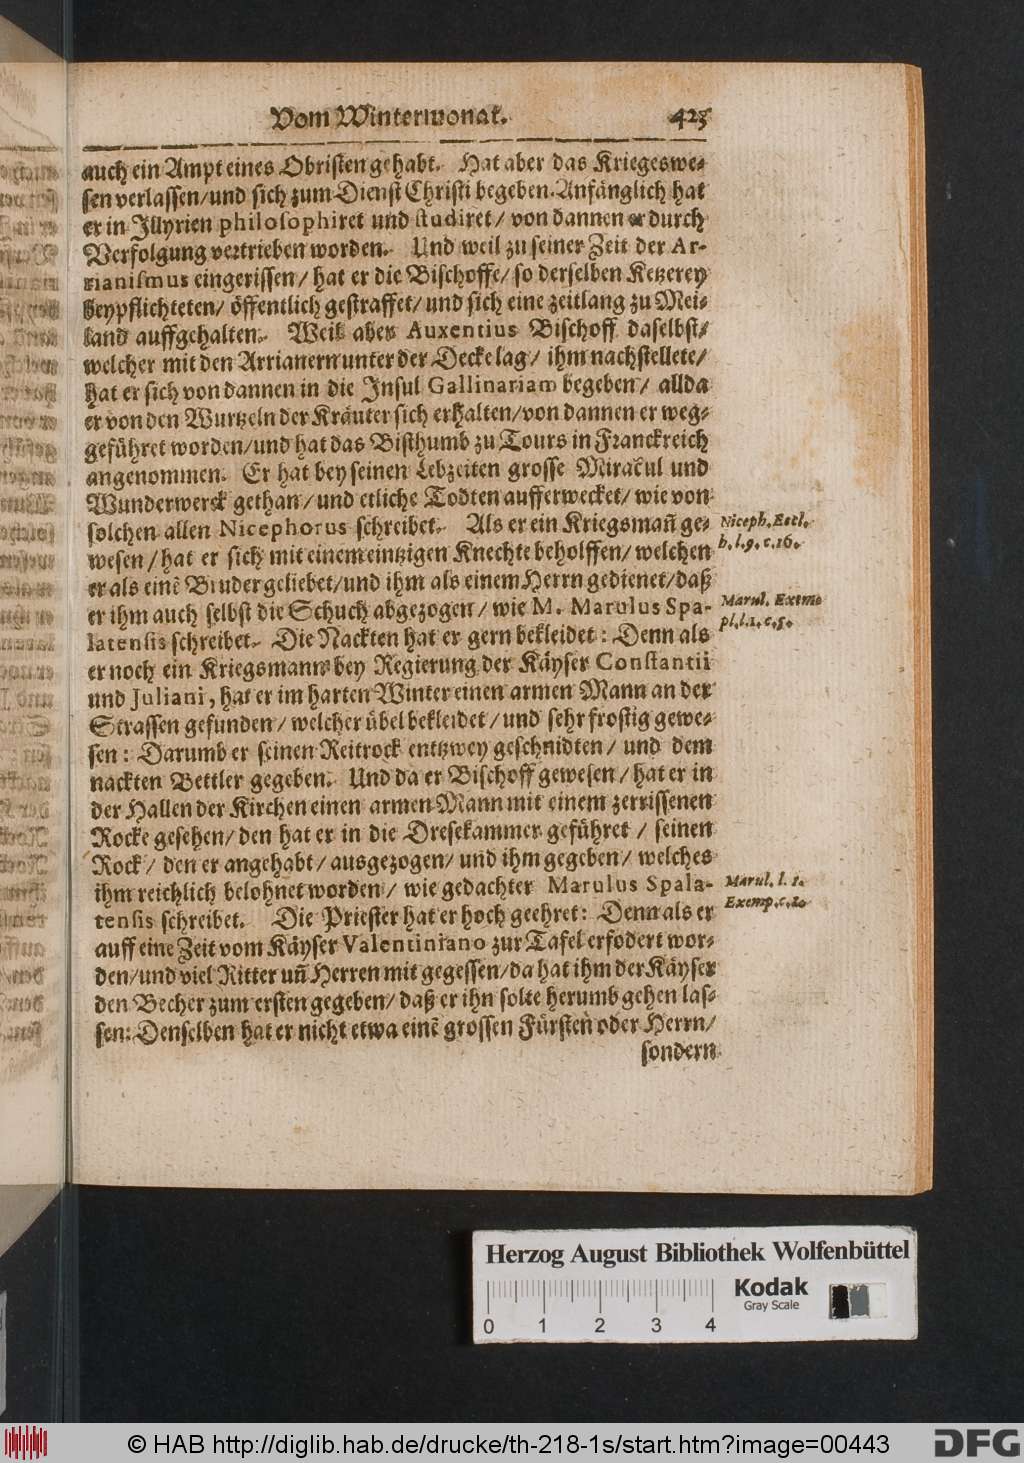 Vom Wintermonat. 423
auch ein Ampt eines Obristen gehabt. Hat aber das Kriegeswe-
sen verlassen/ und sich zum Dienst Christi begeben. Anfänglich hat
er in Illyrien philosophiret und studiret/ von dannen er durch
Verfolgung vertrieben worden. Und weil zu seiner Zeit der Ar-
rianismus eingerissen/ hat er die Bischoffe/ so derselben Ketzerey
beypflichteten/ öffentlich gestraffet/ und sich eine zeitlang zu Mei-
land auffgehalten. Weil aber Auxentius Bischoff daselbst/
welcher mit den Arrianern unter der Decke lag/ ihm nachstellete/
hat er sich von dannen in die Insul Gallinariam begeben/ allda
er von den Wurtzeln der Kräuter sich erhalten/ von dannen er weg-
geführet worden/ und hat das Bisthumb zu Tours in Franckreich
angenommen. Er hat bey seinen Lebzeiten grosse Miracul und
Wunderwerck gethan/ und etliche Todten aufferwecket/ wie von
solchen allen Nicephorus schreibet. Als er ein Kriegsmañ ge-
Niceph. Eccl.
h. l. 9. c. 16.
wesen/ hat er sich mit einem eintzigen Knechte beholffen/ welchen
er als einẽ Bruder geliebet/ und ihm als einem Herrn gedienet/ daß
er ihm auch selbst die Schuch abgezogen/ wie M. Marulus Spa-
Marul. Exem-
pl. l. 1. c. 5.
latensis schreibet. Die Nackten hat er gern bekleidet: Denn als
er noch ein Kriegsmann bey Regierung der Käyser Constantii
und Juliani, hat er im harten Winter einen armen Mann an der
Strassen gefunden/ welcher übel bekleidet/ und sehr frostig gewe-
sen: Darumb er seinen Reitrock entzwey geschnidten/ und dem
nackten Bettler gegeben. Und da er Bischoff gewesen/ hat er in
der Hallen der Kirchen einen armen Mann mit einem zerrissenen
Rocke gesehen/ den hat er in die Dresekammer geführet/ seinen
Rock/ den er angehabt/ ausgezogen/ und ihm gegeben/ welches
ihm reichlich belohnet worden/ wie gedachter Marulus Spala-
Marul. l. 1.
Exemp. c. 2.
tensis schreibet. Die Priester hat er hoch geehret: Denn als er
auff eine Zeit vom Käyser Valentiniano zur Tafel erfodert wor-
den/ und viel Ritter uñ Herren mit gegessen/ da hat ihm der Käyser
den Becher zum ersten gegeben/ daß er ihn solte herumb gehen las-
sen: Denselben hat er nicht etwa einẽ grossen Fürsten oder Herrn/
sondern
Herzog August Bibliothek Wolfenbüttel
Kodak
Gray Scale
0 1 2 3 4
© HAB http://diglib.hab.de/drucke/th-218-1s/start.htm?image=00443
DFG